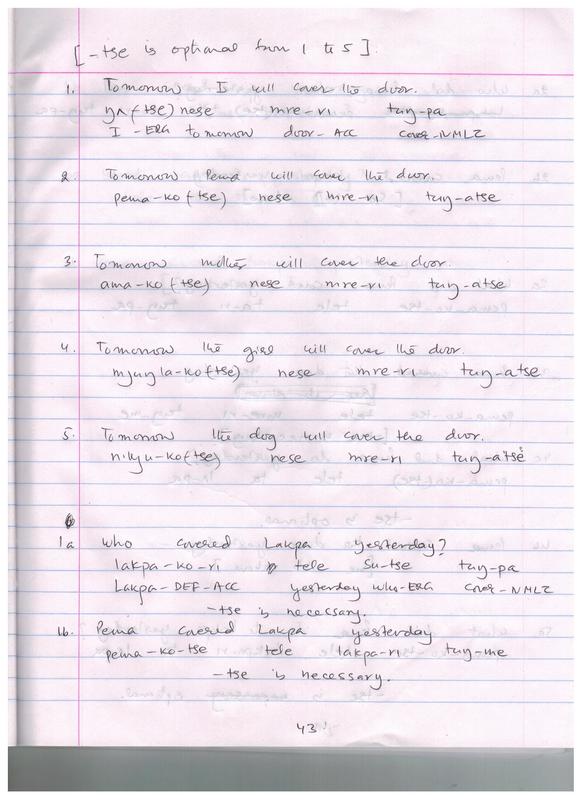 [-tse is optional from 1 to 5].
1. Tomorrow I will cover the door.
ŋʌ (tse) nese mre-ri tuŋ-pa
I -ERG tomorrow door-ACC cover-NMLZ
2. Tomorrow Pema will cover the door.
pema-ko (tse) nese mre-ri tuŋ-atse
3. Tomorrow mother will cover the door.
ama-ko (tse) nese mre-ri tuŋ-atse
4. Tomorrow the girl will cover the door.
mjuŋla-ko (tse) nese mre-ri tuŋ-atse
5. Tomorrow the dog will cover the door.
nikju-ko (tse) nese mre-ri tuŋ-atse
1a who covered Lakpa yesterday?
lakpa-ko-ri tele su-tse tuŋ-pa
Lakpa-DEF-ACC yesterday who-ERG cover-NMLZ
-tse is necessary.
1b. Pema covered Lakpa yesterday
pema-ko-tse tele lakpa-ri tuŋ-me
-tse is necessary.
43